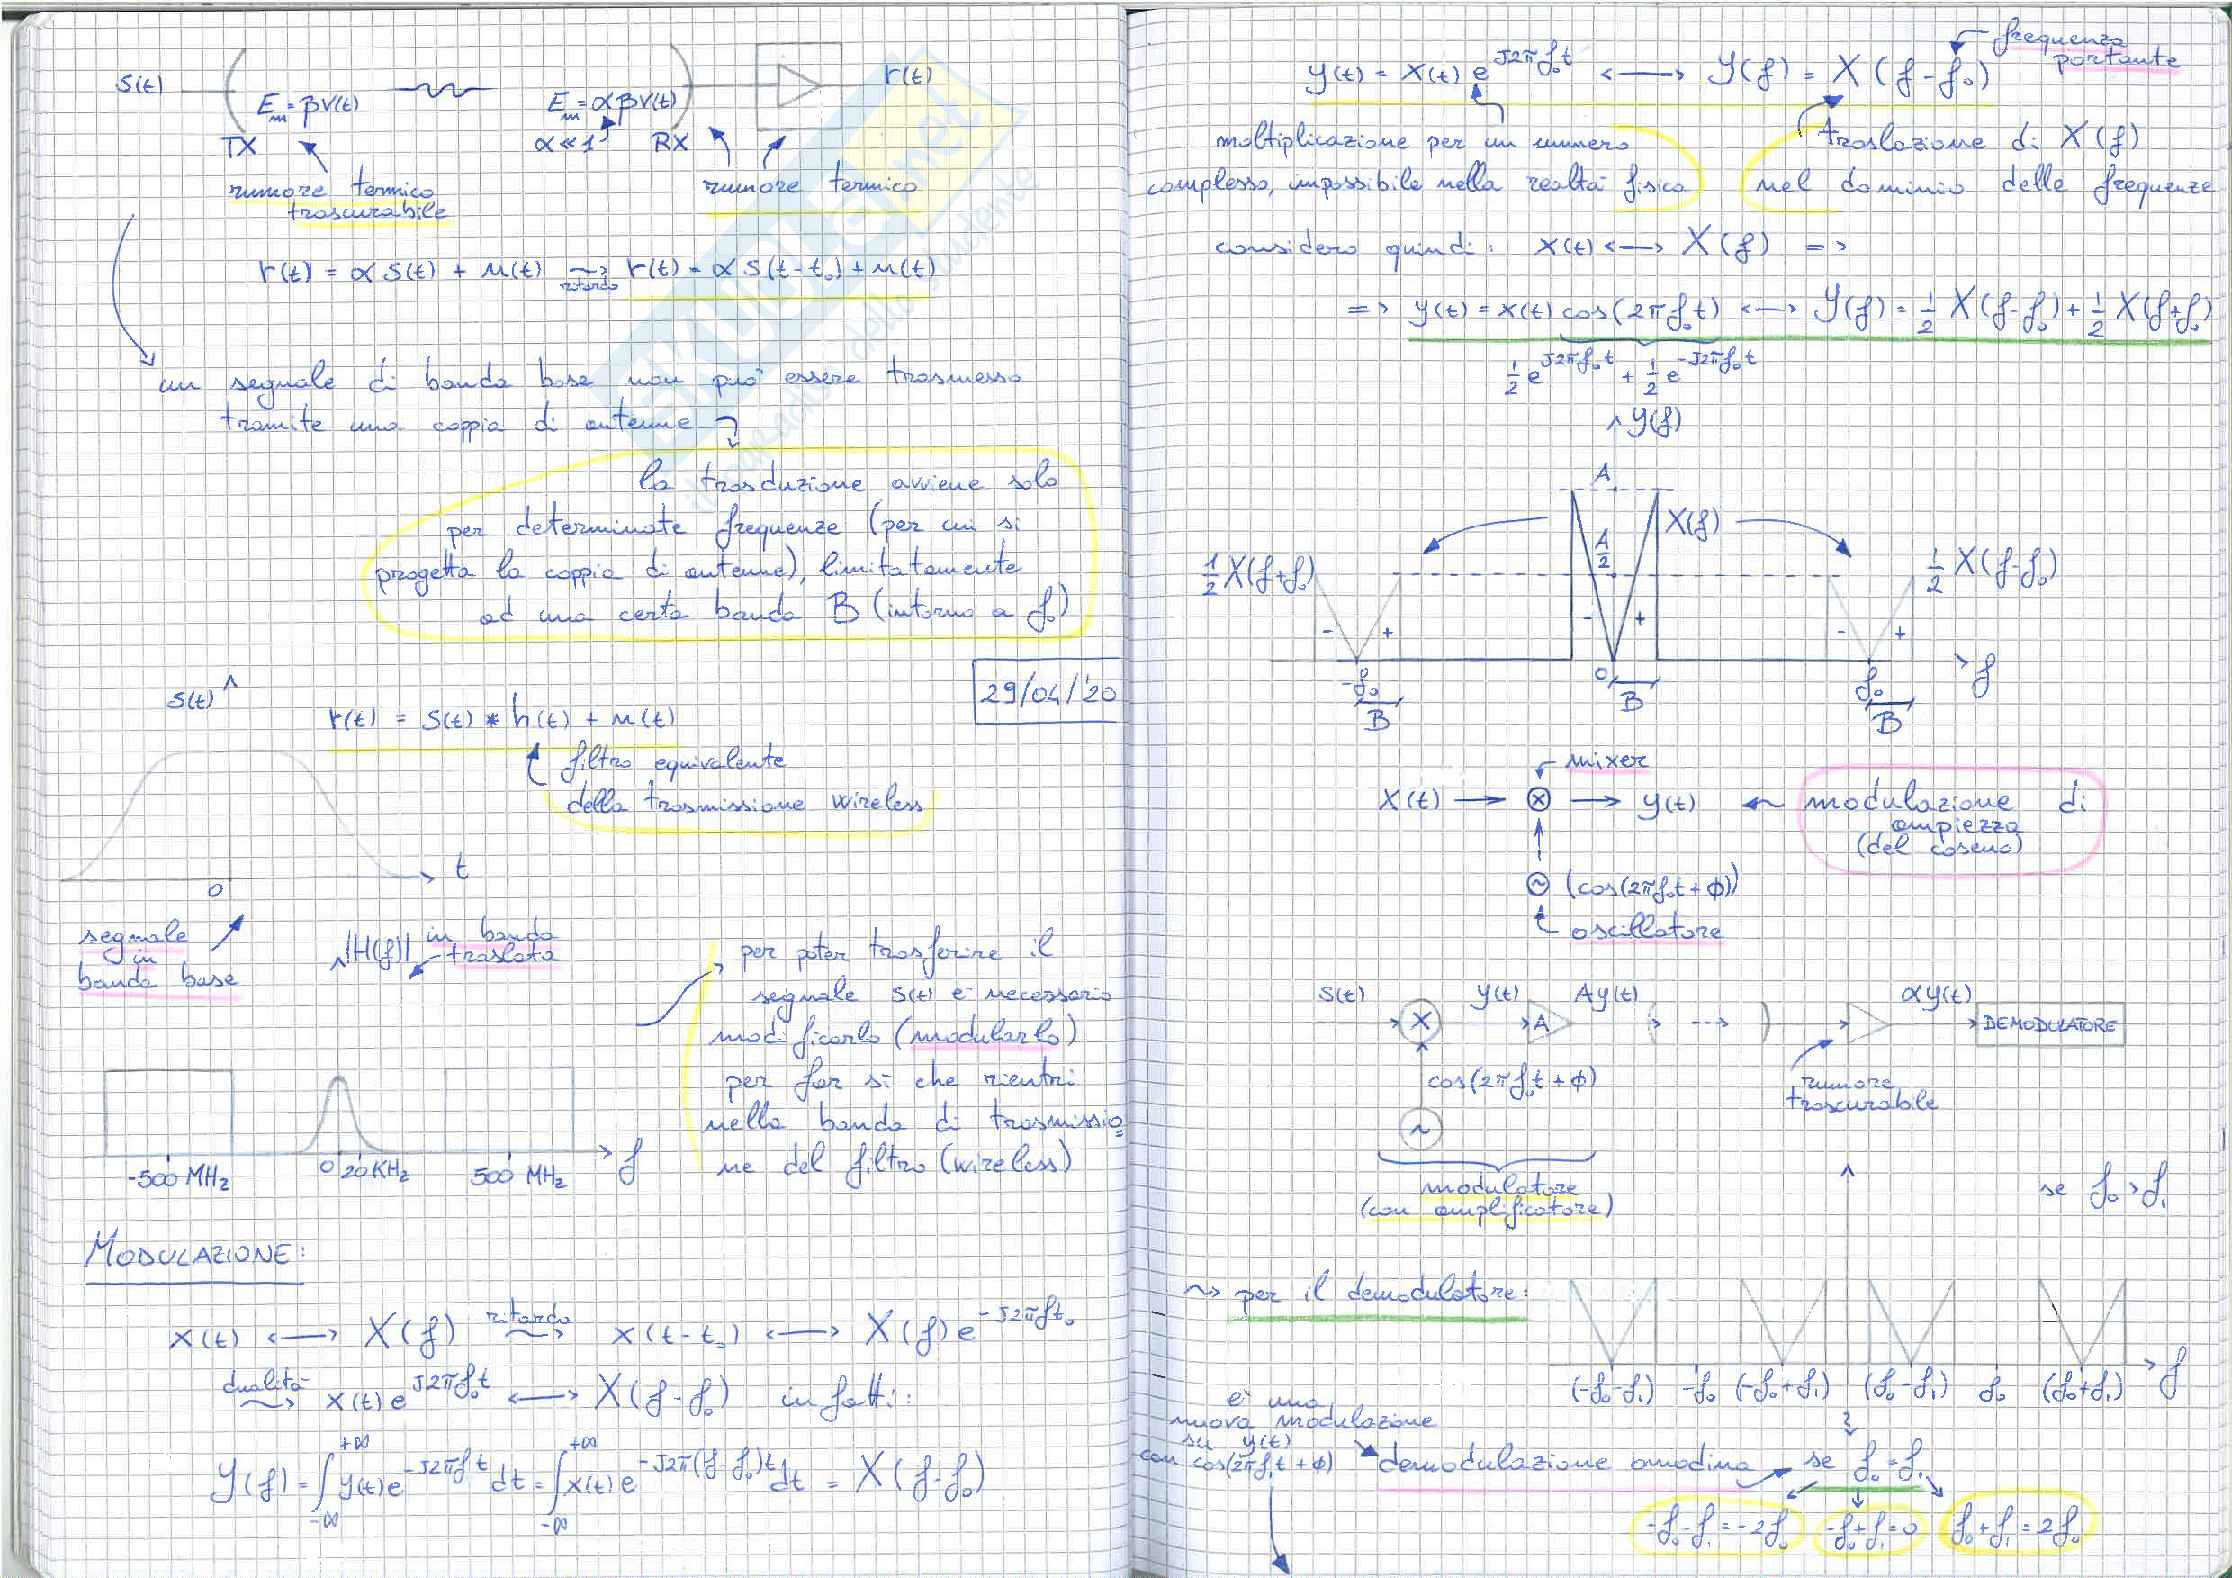 S(t)
E_m = βV(t)
E_m = αβV(t)
r(t)
TX
α ≪ 1
RX
rumore termico
trascurabile
rumore termico
r(t) = α S(t) + n(t) ⟿ r(t) = α S(t-t₀) + n(t)
ritardo
un segnale di banda base non può essere trasmesso
tramite una coppia di antenne
la trasduzione avviene solo
per determinate frequenze (per cui si
progetta la coppia di antenne), limitatamente
ad una certa banda B (intorno a f₀)
29/04/'20
S(t)
r(t) = S(t) * h(t) + n(t)
filtro equivalente
della trasmissione wireless
t
0
segnale
in
banda base
|H(f)|
in banda
traslata
per poter trasferire il
segnale S(t) è necessario
modificarlo (modularlo)
per far sì che rientri
nella banda di trasmissio
ne del filtro (wireless)
-500 MHz
0
20 KHz
500 MHz
f
MODULAZIONE:
x(t) ⟷ X(f) ritardo ⟿ x(t-t₀) ⟷ X(f) e^{-J2πft₀}
dualità ⟿ x(t) e^{J2πf₀t} ⟷ X(f-f₀) infatti:
Y(f) = ∫_{-∞}^{+∞} y(t) e^{-J2πft} dt = ∫_{-∞}^{+∞} x(t) e^{-J2π(f-f₀)t} dt = X(f-f₀)
frequenza
portante
y(t) = x(t) e^{J2πf₀t} ⟷ Y(f) = X(f-f₀)
moltiplicazione per un numero
complesso, impossibile nella realtà fisica
traslazione di X(f)
nel dominio delle frequenze
considero quindi: x(t) ⟷ X(f) =>
=> y(t) = x(t) cos(2πf₀t) ⟷ Y(f) = 1/2 X(f-f₀) + 1/2 X(f+f₀)
1/2 e^{J2πf₀t} + 1/2 e^{-J2πf₀t}
Y(f)
A
X(f)
A/2
1/2 X(f+f₀)
1/2 X(f-f₀)
- +
- +
- +
-f₀
0
f₀
f
B
B
B
mixer
x(t) → ⊗ → y(t)
modulazione di
ampiezza
(del coseno)
(cos(2πf₀t + ϕ))
oscillatore
S(t)
y(t)
Ay(t)
αy(t)
×
A
DEMODULATORE
cos(2πf₀t + ϕ)
rumore
trascurabile
~
modulatore
(con amplificatore)
se f₀ > f₁
per il demodulatore:
(-f₀-f₁) -f₀ (-f₀+f₁) (f₀-f₁) f₀ (f₀+f₁) f
è una
nuova modulazione
su y(t)
con cos(2πf₁t + ϕ)
demodulazione omodina
se f₀ = f₁
-f₀-f₁ = -2f₀
-f₀+f₁ = 0
f₀+f₁ = 2f₀